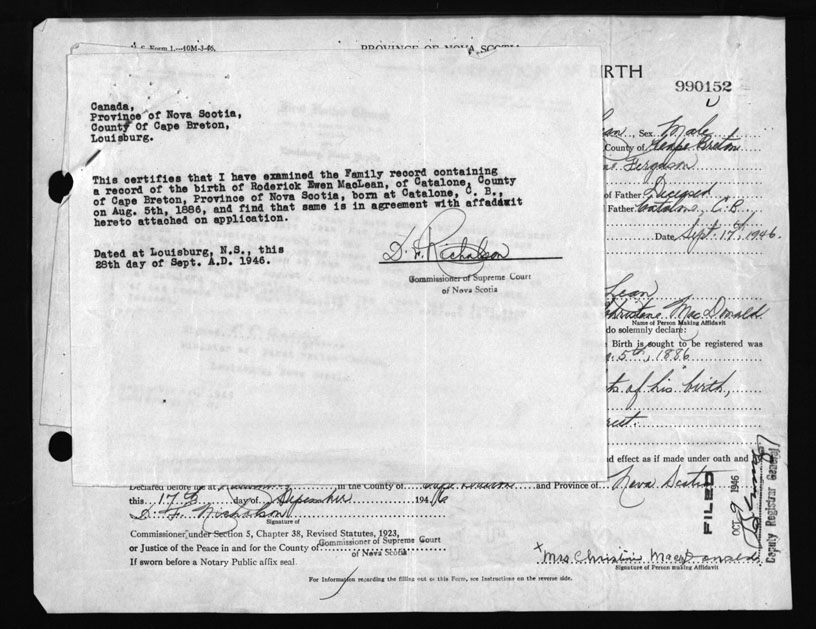 Form 1.—10M-3-46.
PROVINCE OF NOVA SCOTIA
RTH
990152
Canada,
Province of Nova Scotia,
County Of Cape Breton,
Louisburg.
This certifies that I have examined the Family record containing
a record of the birth of Roderick Ewen MacLean, of Catalone, County
of Cape Breton, Province of Nova Scotia, born at Catalone, C. B.,
on Aug. 5th, 1886, and find that same is in agreement with affadavit
hereto attached on application.
Dated at Louisburg, N.S., this
28th day of Sept. A.D. 1946.
D. F. Nicholson
Commissioner of Supreme Court
of Nova Scotia
ean, Sex Male
County of Cape Breton
Ferguson
of Father Deceased
Father Catalone, C.B.
Date Sept. 17th, 1946.
Lean
Christene MacDonald
Name of Person Making Affidavit
do solemnly declare:
Birth is sought to be registered was
5th, 1886
of his birth,
nd effect as if made under oath and
Declared before me at in the County of Cape Breton and Province of Nova Scotia
this 17th day of September 1946
D. F. Nicholson
Signature of
Commissioner under Section 5, Chapter 38, Revised Statutes, 1923,
or Justice of the Peace in and for the County of Commissioner of Supreme Court
of Nova Scotia
If sworn before a Notary Public affix seal.
x Mrs Christine MacDonald
Signature of Person Making Affidavit
For Information regarding the filling out of this Form, see Instructions on the reverse side.
FILED
OCT 9 1946
Deputy Registrar General